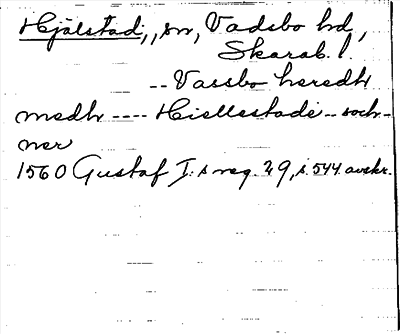 Hjälstad, sn, Vadsbo hd,
Skarab. l.
-- Vassbo heredh
medh ---- Hiellestade -- soch-
ner
1560 Gustaf I:s reg. 29, s. 544. avskr.